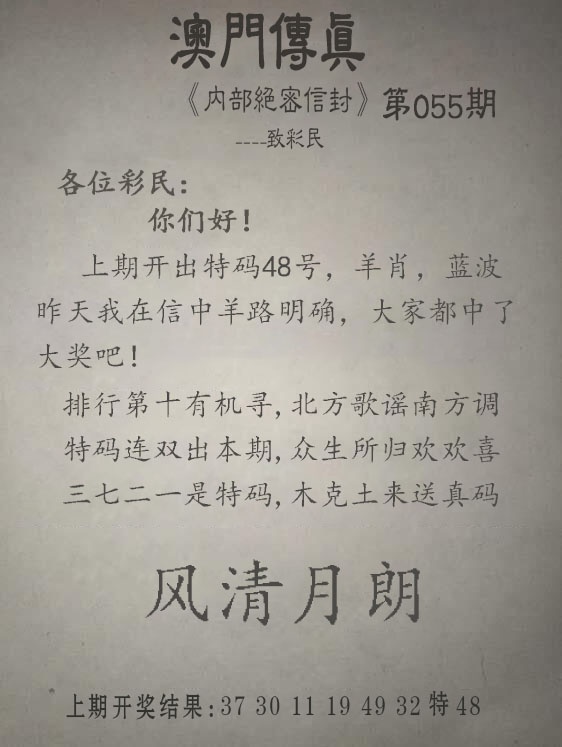 澳門傳眞
《内部絕密信封》第055期
----致彩民
各位彩民：
你们好！
上期开出特码48号，羊肖，蓝波
昨天我在信中羊路明确，大家都中了
大奖吧！
排行第十有机寻,北方歌谣南方调
特码连双出本期,众生所归欢欢喜
三七二一是特码,木克土来送真码
风清月朗
上期开奖结果:37 30 11 19 49 32 特 48